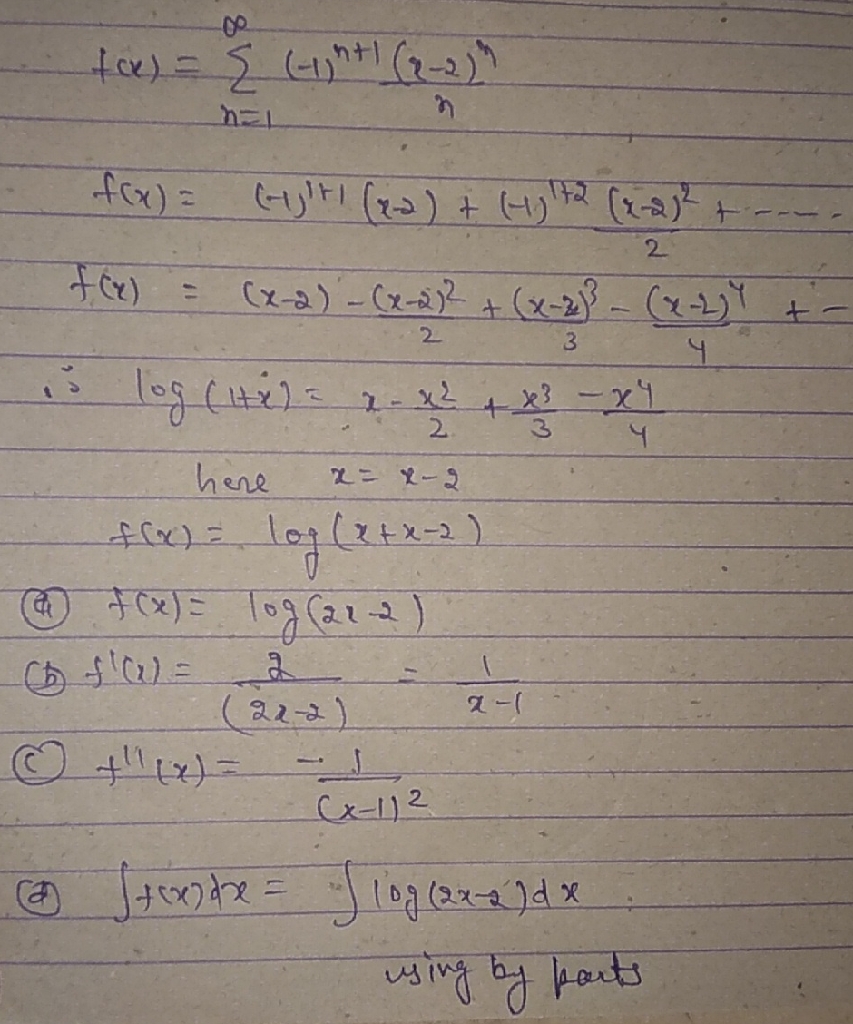 f(x) = ∞ Σ n=1 (-1)^n+1 (x-2)^n / n
f(x) = (-1)^1+1 (x-2) + (-1)^1+2 (x-2)^2 / 2 + -----
f(x) = (x-2) - (x-2)^2 / 2 + (x-2)^3 / 3 - (x-2)^4 / 4 + -
∵ log (1+x) = x - x^2 / 2 + x^3 / 3 - x^4 / 4
here x = x-2
f(x) = log (x+x-2)
(a) f(x) = log (2x-2)
(b) f'(x) = 2 / (2x-2) = 1 / x-1
(c) f''(x) = -1 / (x-1)^2
(d) ∫f(x)dx = ∫log(2x-2)dx
using by parts